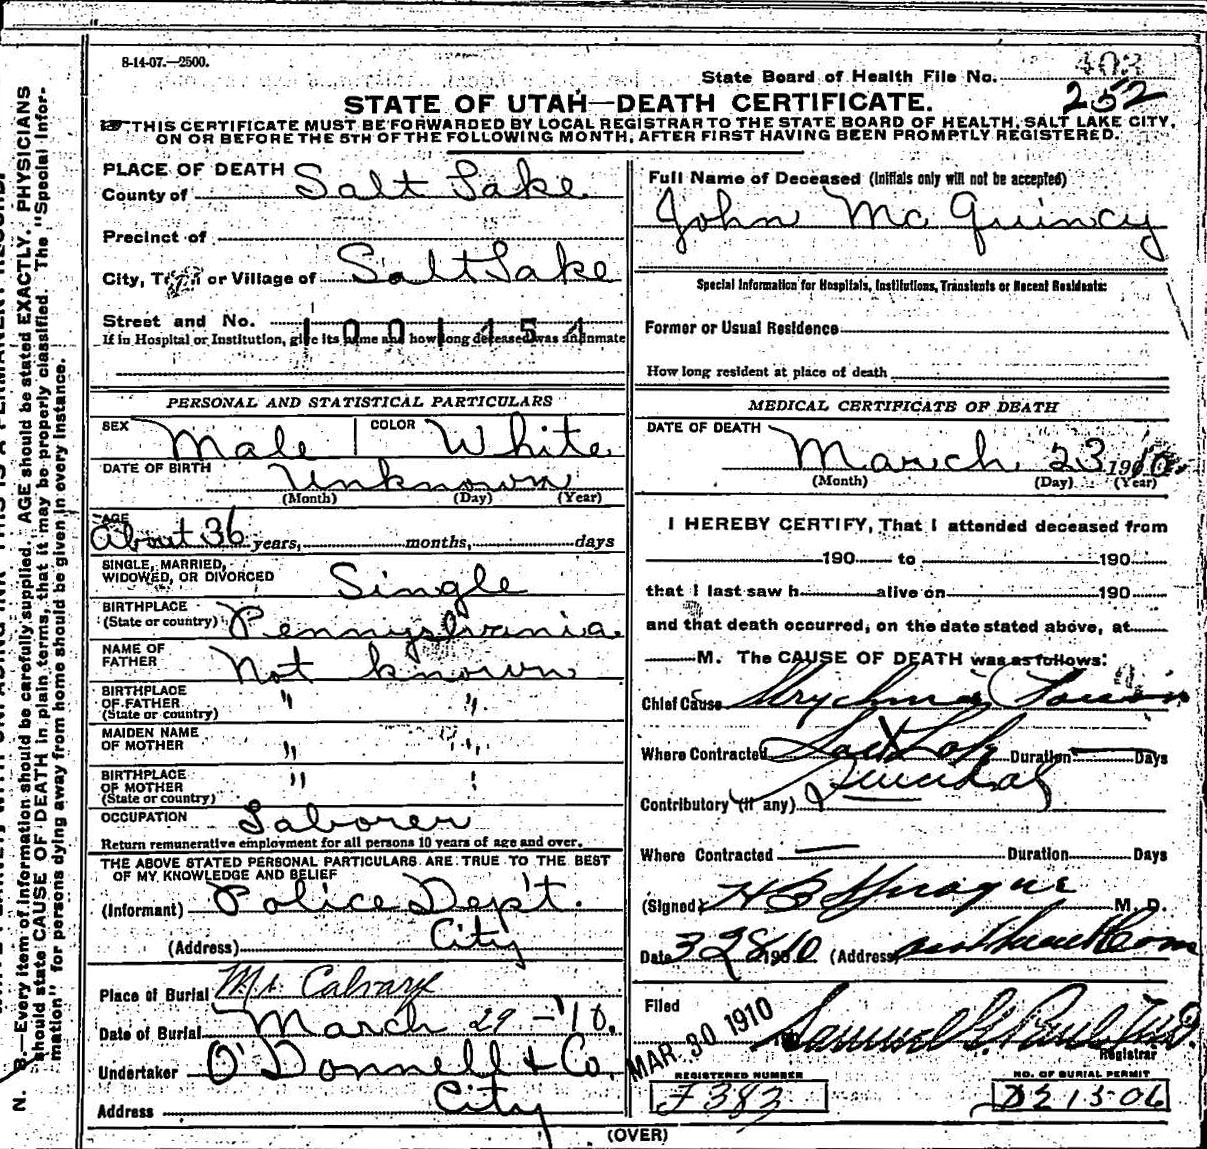 8-14-07.—2500.
State Board of Health File No. 403
252
STATE OF UTAH—DEATH CERTIFICATE.
THIS CERTIFICATE MUST BE FORWARDED BY LOCAL REGISTRAR TO THE STATE BOARD OF HEALTH, SALT LAKE CITY,
ON OR BEFORE THE 5TH OF THE FOLLOWING MONTH, AFTER FIRST HAVING BEEN PROMPTLY REGISTERED.
PLACE OF DEATH
County of Salt Lake
Precinct of
City, Town or Village of Salt Lake
Street and No. 1001454
If in Hospital or Institution, give its name and how long deceased was an inmate
PERSONAL AND STATISTICAL PARTICULARS
SEX Male COLOR White
DATE OF BIRTH Unknown
(Month) (Day) (Year)
AGE
About 36 years, months, days
SINGLE, MARRIED,
WIDOWED, OR DIVORCED Single
BIRTHPLACE
(State or country) Pennyslvania
NAME OF
FATHER Not known
BIRTHPLACE
OF FATHER " "
(State or country)
MAIDEN NAME
OF MOTHER " "
BIRTHPLACE
OF MOTHER "
(State or country)
OCCUPATION Laborer
Return remunerative employment for all persons 10 years of age and over.
THE ABOVE STATED PERSONAL PARTICULARS ARE TRUE TO THE BEST
OF MY KNOWLEDGE AND BELIEF
(Informant) Police Dep't.
(Address) City
Place of Burial Mt. Calvary
Date of Burial March 29 - '10.
Undertaker O'Donnell & Co.
Address City
Full Name of Deceased (Initials only will not be accepted)
John McQuincy
Special Information for Hospitals, Institutions, Transients or Recent Residents:
Former or Usual Residence
How long resident at place of death
MEDICAL CERTIFICATE OF DEATH
DATE OF DEATH
March 23 1910
(Month) (Day) (Year)
I HEREBY CERTIFY, That I attended deceased from
190 to 190
that I last saw h alive on 190
and that death occurred, on the date stated above, at
M. The CAUSE OF DEATH was as follows:
Chief Cause Strychnia Poison
Where Contracted Salt Lake Duration Days
Suicidal
Contributory (if any)
Where Contracted — Duration Days
(Signed) H B Sprague M. D.
Date 3 28 1910 (Address)
Filed
MAR. 30 1910 Samuel G. Paul
Registrar
REGISTERED NUMBER NO. OF BURIAL PERMIT
F 383 D 21506
(OVER)
N. B.—Every item of information should be carefully supplied. AGE should be stated EXACTLY. PHYSICIANS
should state CAUSE OF DEATH in plain terms, that it may be properly classified. The "Special Infor-
mation" for persons dying away from home should be given in every instance.